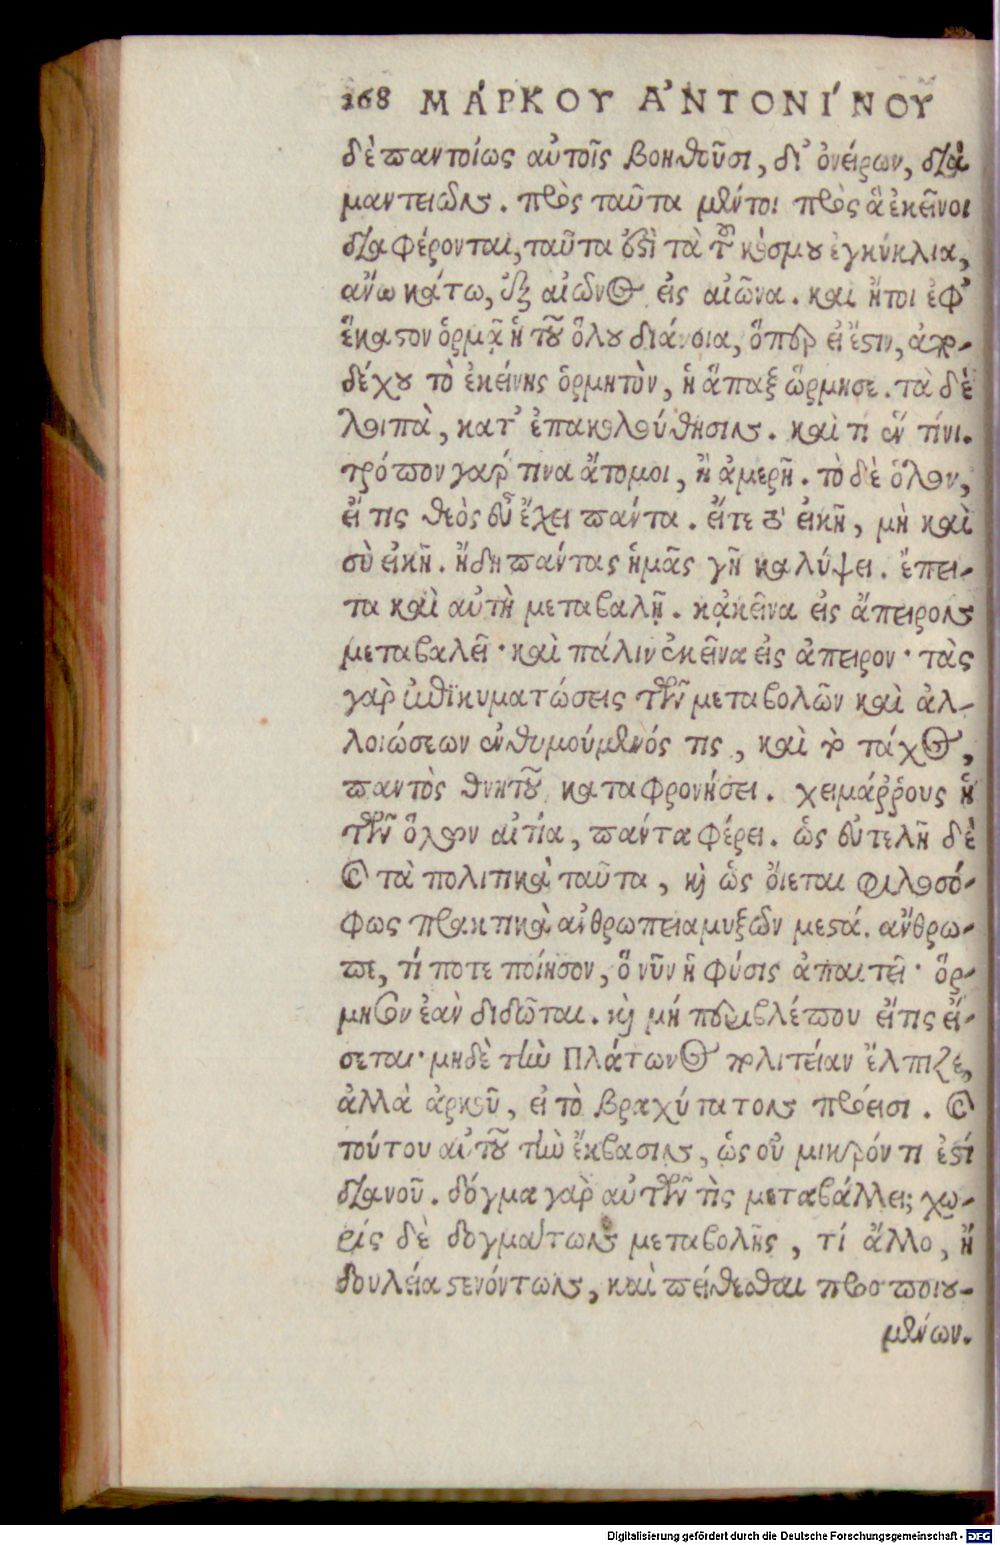 168 ΜΑ´ΡΚΟΥ Α᾿ΝΤΟΝΙ´ΝΟΥ
δὲ παντοίως αὐτοῖς βοηθοῦσι, δι᾽ ὀνείρων, διὰ
μαντειῶν. πρὸς ταῦτα μέντοι πρὸς ἃ ἐκεῖνοι
διαφέρονται, ταῦτα ἐστὶ τὰ τοῦ κόσμου ἐγκύκλια,
ἄνω κάτω, ἐξ αἰῶνος εἰς αἰῶνα. καὶ ἤτοι ἐφ᾽
ἕκαστον ὁρμᾷ ἡ τοῦ ὅλου διάνοια, ὅπερ εἰ ἔστιν, ἀπο-
δέχου τὸ ἐκείνης ὁρμητὸν, ἢ ἅπαξ ὥρμησε. τὰ δὲ
λοιπὰ, κατ᾽ ἐπακολούθησιν. καὶ τι ἐν τίνι.
τρόπον γάρ τινα ἄτομοι, ἢ ἀμερῆ. τὸ δὲ ὅλον,
εἴ τις θεὸς εὖ ἔχει πάντα. εἴτε τὸ εἰκῆ, μὴ καὶ
σὺ εἰκῆ. ἤδη πάντας ἡμᾶς γῆ καλύψει. ἔπει-
τα καὶ αὐτὴ μεταβαλῇ. κᾀκεῖνα εἰς ἄπειρον
μεταβαλεῖ· καὶ πάλιν ἐκεῖνα εἰς ἄπειρον· τὰς
γὰρ ἐπικυματώσεις τῶν μεταβολῶν καὶ ἀλ-
λοιώσεων ἐνθυμούμενός τις, καὶ τὸ τάχος,
παντὸς θνητοῦ καταφρονήσει. χειμάῤῥους ἡ
τῶν ὅλων αἰτία, πάντα φέρει. ὡς εὐτελῆ δὲ
καὶ τὰ πολιτικὰ ταῦτα, καὶ ὡς οἴεται φιλοσό-
φως πρακτικὰ ἀνθρωπεια μυξῶν μεστά. ἄνθρω-
πε, τί ποτε ποίησον, ὃ νῦν ἡ φύσις ἀπαιτεῖ· ὅρ-
μησον ἐὰν διδῶται. καὶ μή περιβλέπου εἴ τις εἴ-
σεται· μηδὲ τὴν Πλάτωνος πολιτείαν ἔλπιζε,
ἀλλὰ ἀρκοῦ, εἰ τὸ βραχύτατον πρόεισι. καὶ
τούτου αὐτοῦ τὴν ἔκβασιν, ὡς οὐ μικρόν τι ἐστί
διανοῦ. δόγμα γὰρ αὐτῶν τὶς μεταβάλλει; χω-
ρίς δὲ δογμάτων μεταβολῆς, τί ἄλλο, ἢ
δουλεία στενόντων, καὶ πείθεσθαι προσποιου-
μένων.
Digitalisierung gefördert durch die Deutsche Forschungsgemeinschaft - DFG